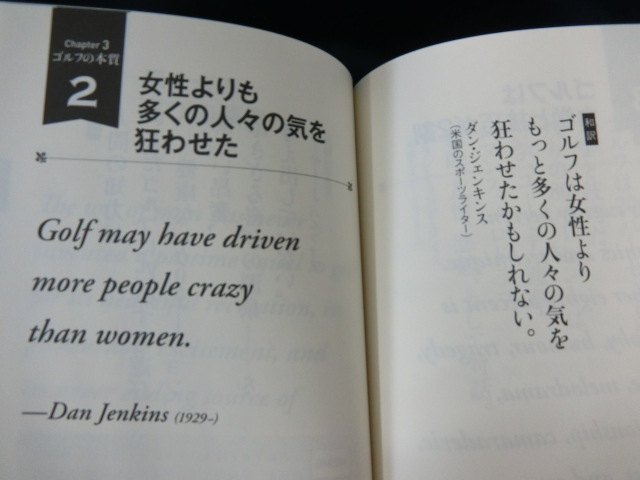 Chapter 3
ゴルフの本質
2
女性よりも
多くの人々の気を
狂わせた
Golf may have driven
more people crazy
than women.
—Dan Jenkins (1929–)
和訳
ゴルフは女性より
もっと多くの人々の気を
狂わせたかもしれない。
ダン・ジェンキンス
（米国のスポーツライター）